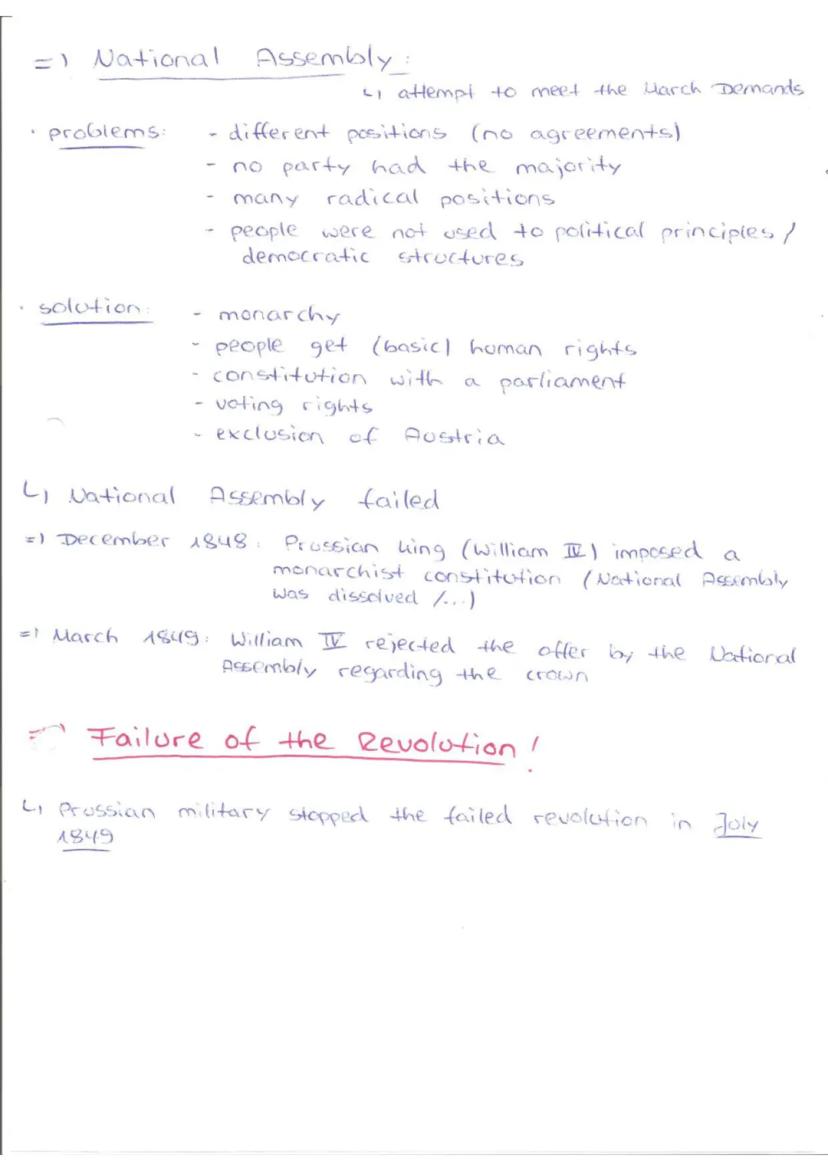 => National Assembly:
↳ attempt to meet the March Demands
· problems: - different positions (no agreements)
- no party had the majority
- many radical positions
- people were not used to political principles /
democratic structures
· solution: - monarchy
- people get (basic) human rights
- constitution with a parliament
- voting rights
- exclusion of Austria
↳ National Assembly failed
=> December 1848: Prussian king (William IV) imposed a
monarchist constitution (National Assembly
was dissolved /...)
=> March 1849: William IV rejected the offer by the National
Assembly regarding the crown
=> Failure of the Revolution!
↳ Prussian military stopped the failed revolution in July
1849